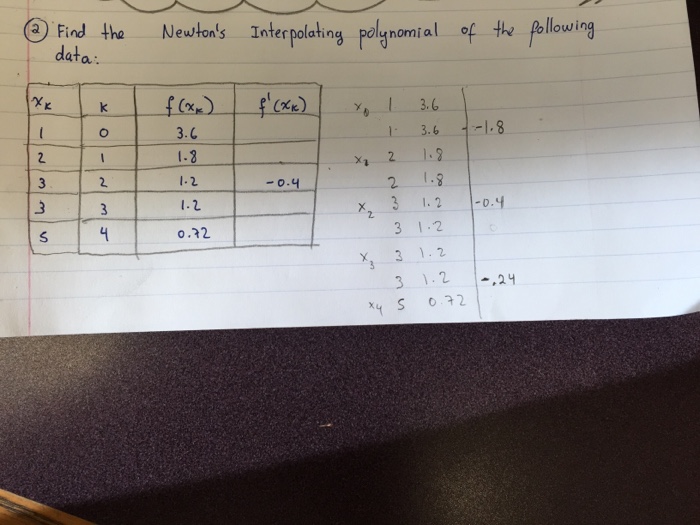 ② Find the Newton's Interpolating polynomial of the following
data:
xₖ k f(xₖ) f'(xₖ)
1 0 3.6
2 1 1.8
3 2 1.2 -0.4
3 3 1.2
5 4 0.72
x₀ 1 3.6
1 3.6 -1.8
x₁ 2 1.8
2 1.8
x₂ 3 1.2 -0.4
3 1.2
x₃ 3 1.2
3 1.2 -.24
x₄ 5 0.72